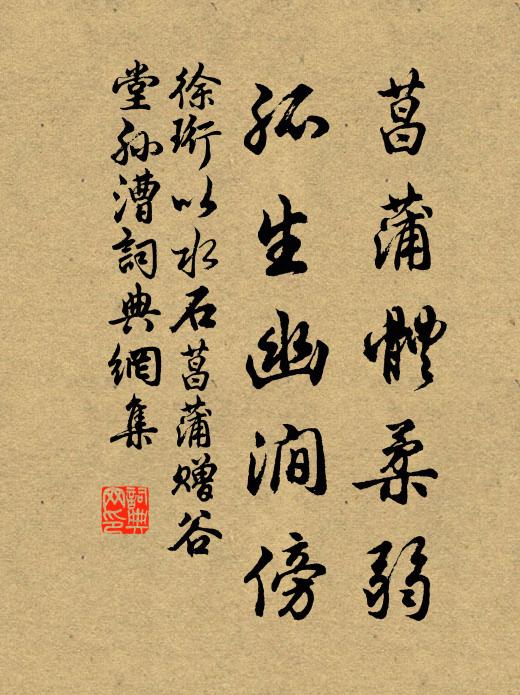 菖蒲體柔弱
孤生幽澗傍
徐珩以水石菖蒲贈谷
堂孙漕詞典網集
詞典
网印